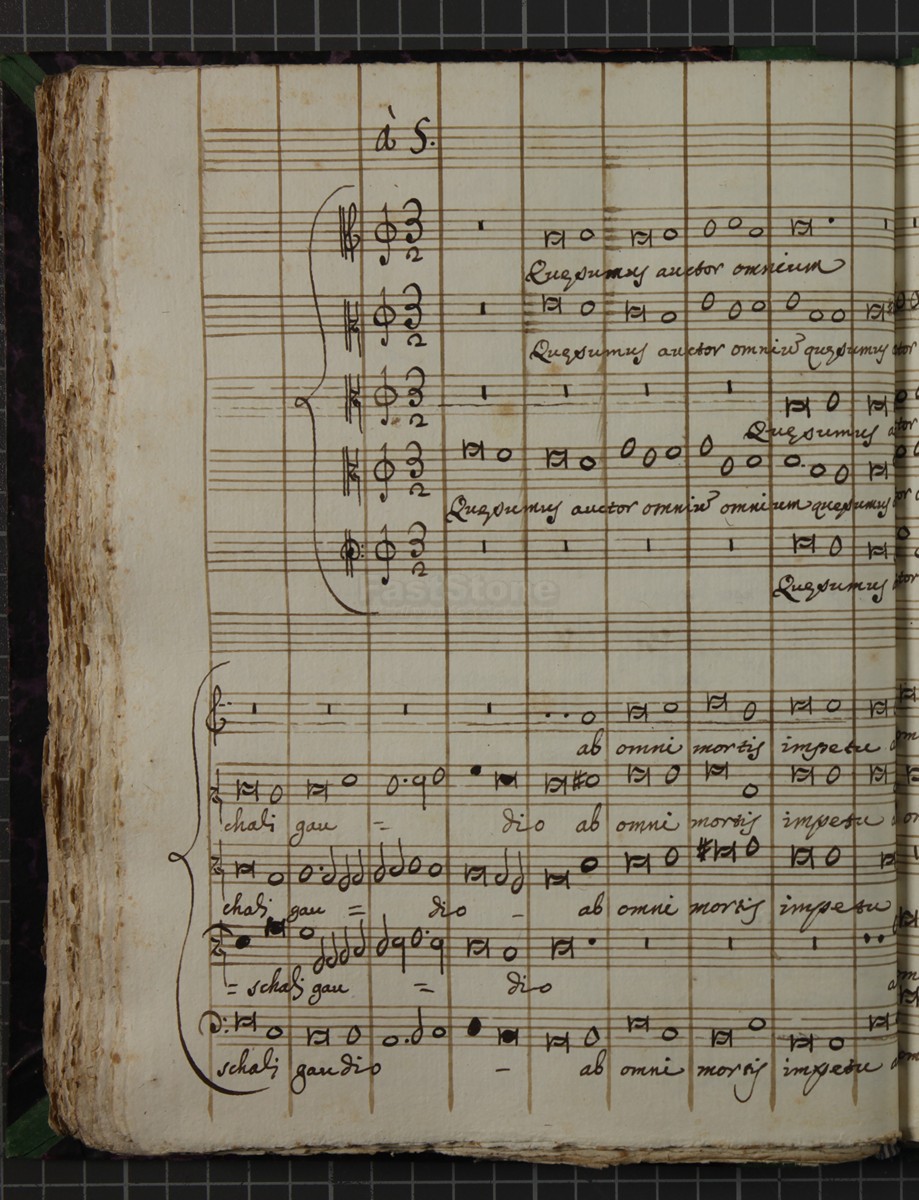 à 5.
Quęsumus auctor omnium
Quęsumus auctor omniũ quęsumus ctor
Quęsumus a ctor
Quęsumus auctor omniũ omnium quęsumus
Quęsumus ctor
FastStone
ab omni mortis impetu om
chali gau = dio ab omni mortis impetu
chali gau = dio - ab omni mortis impetu
= schali gau = dio
schali gaudio - ab omni mortis impetu